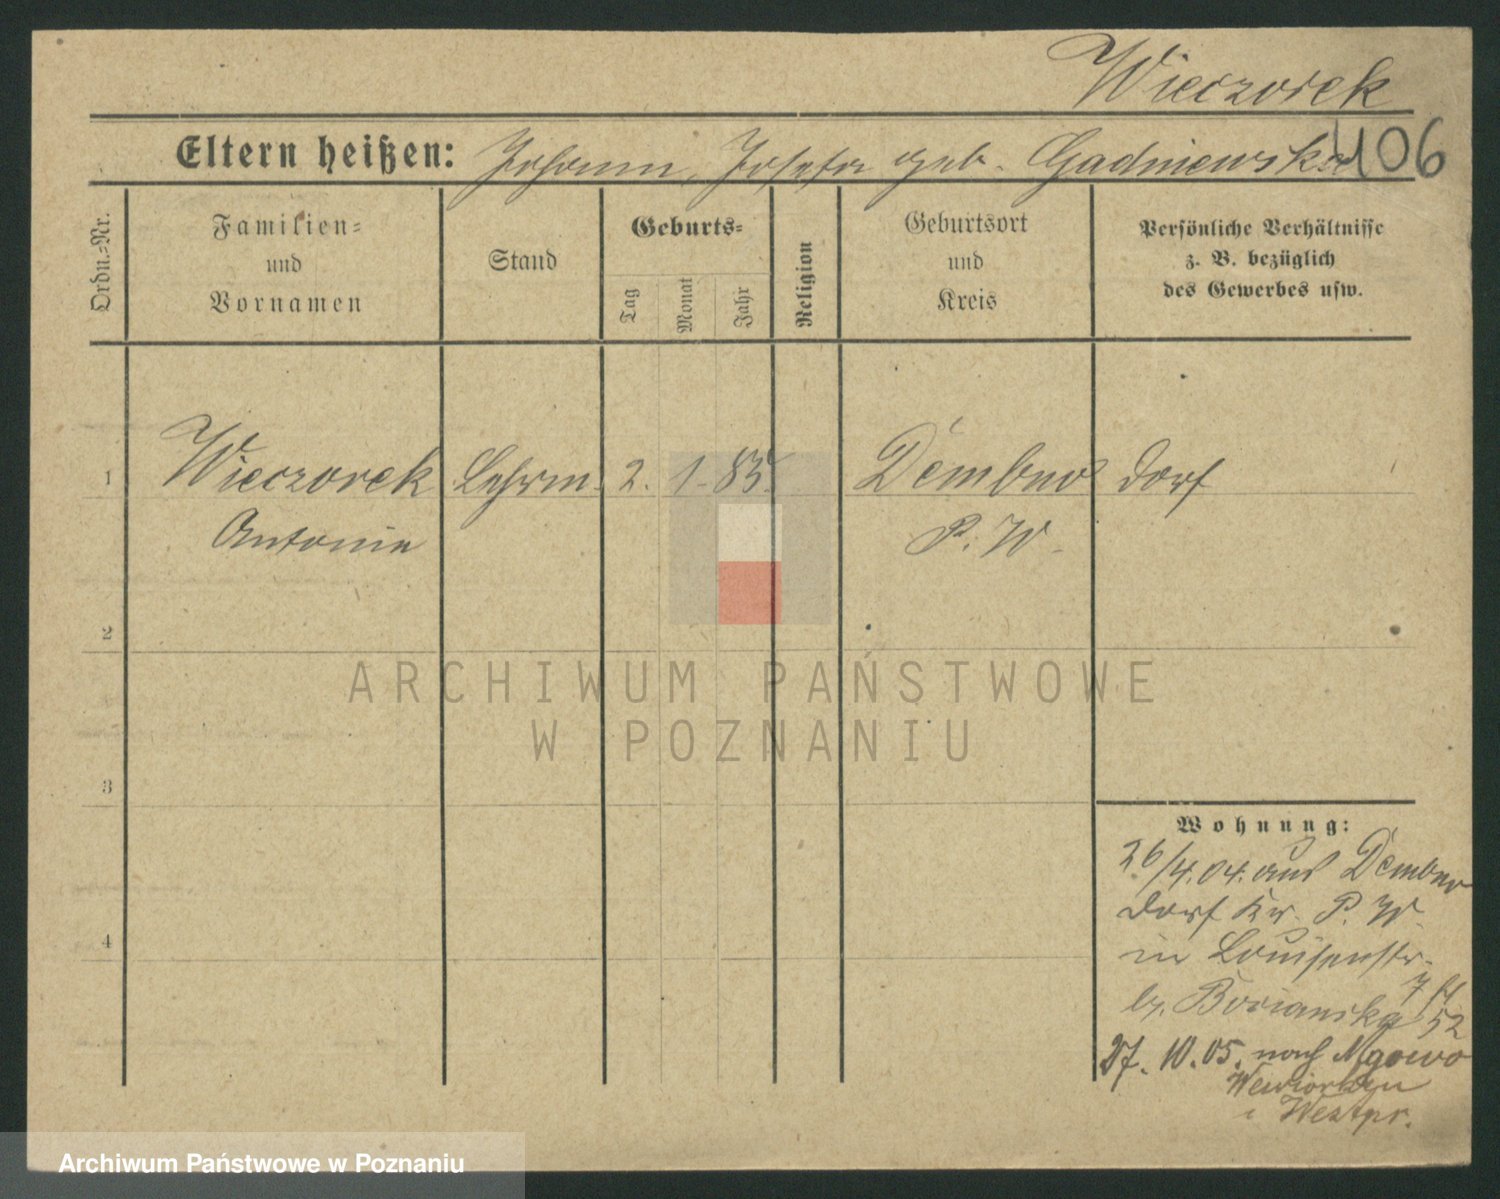 Wieczorek
Eltern heißen: Johann, Josefa geb. Gadniewska
406
Ordn.-Nr.
Familien-
und
Vornamen
Stand
Geburts-
Tag
Monat
Jahr
Religion
Geburtsort
und
Kreis
Persönliche Verhältnisse
z. B. bezüglich
des Gewerbes usw.
1 Wieczorek Lehrm. 2. 1. 85. Dembno dorf
Antonie P. W.
2
3
4
ARCHIWUM PAŃSTWOWE
W POZNANIU
Wohnung:
26/4.04. aus Dembno
dorf Kr. P. W.
in Louisenstr.
by. 
27.10.05. nach Mgowo
i Westpr.
Archiwum Państwowe w Poznaniu